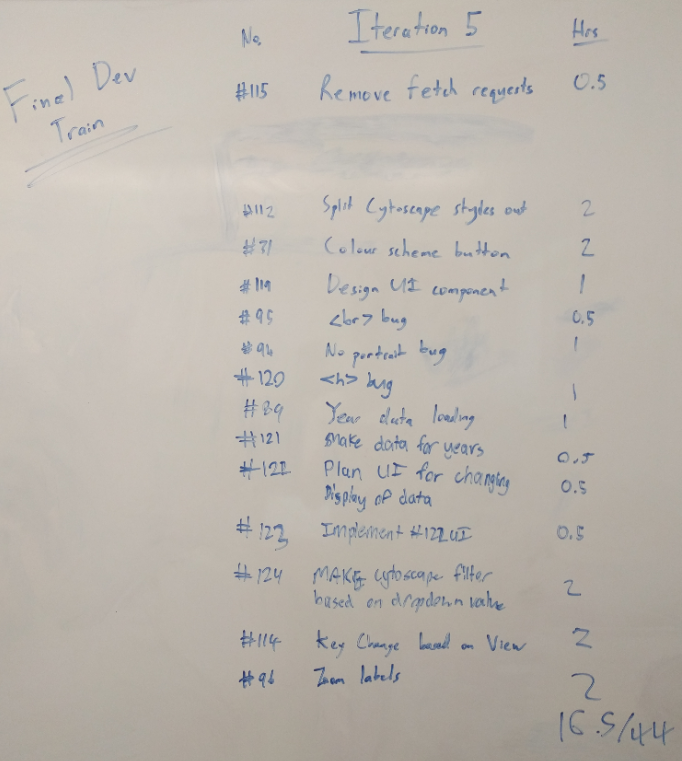 Final Dev
Train
No. Iteration 5 Hrs
#115 Remove fetch requests 0.5
#112 Split Cytoscape styles out 2
#71 Colour scheme button 2
#119 Design UI component 1
#95 <br> bug 0.5
#94 No portrait bug 1
#120 <h> bug 1
#89 Year data loading 1
#121 Make data for years 0.5
#122 Plan UI for changing
Display of data 0.5
#123 Implement #122 UI 0.5
#124 MAKE cytoscape filter
based on dropdown value 2
#114 Key Change based on View 2
#96 Zoom labels 2
16.5/44